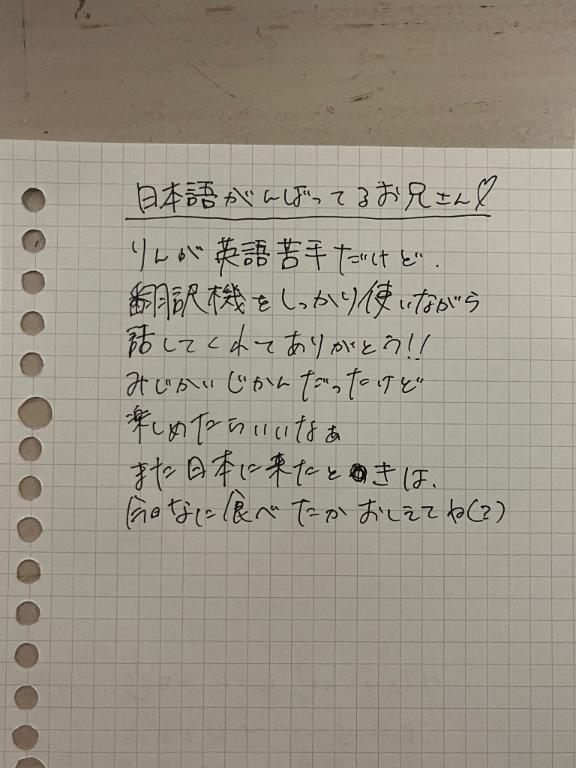 日本語がんばってるお兄さん♡
りんが英語苦手だけど、
翻訳機をしっかり使いながら
話してくれてありがとう!!
みじかいじかんだったけど
楽しめたらいいなぁ
また日本に来たときは、
今日なに食べたかおしえてね(?)